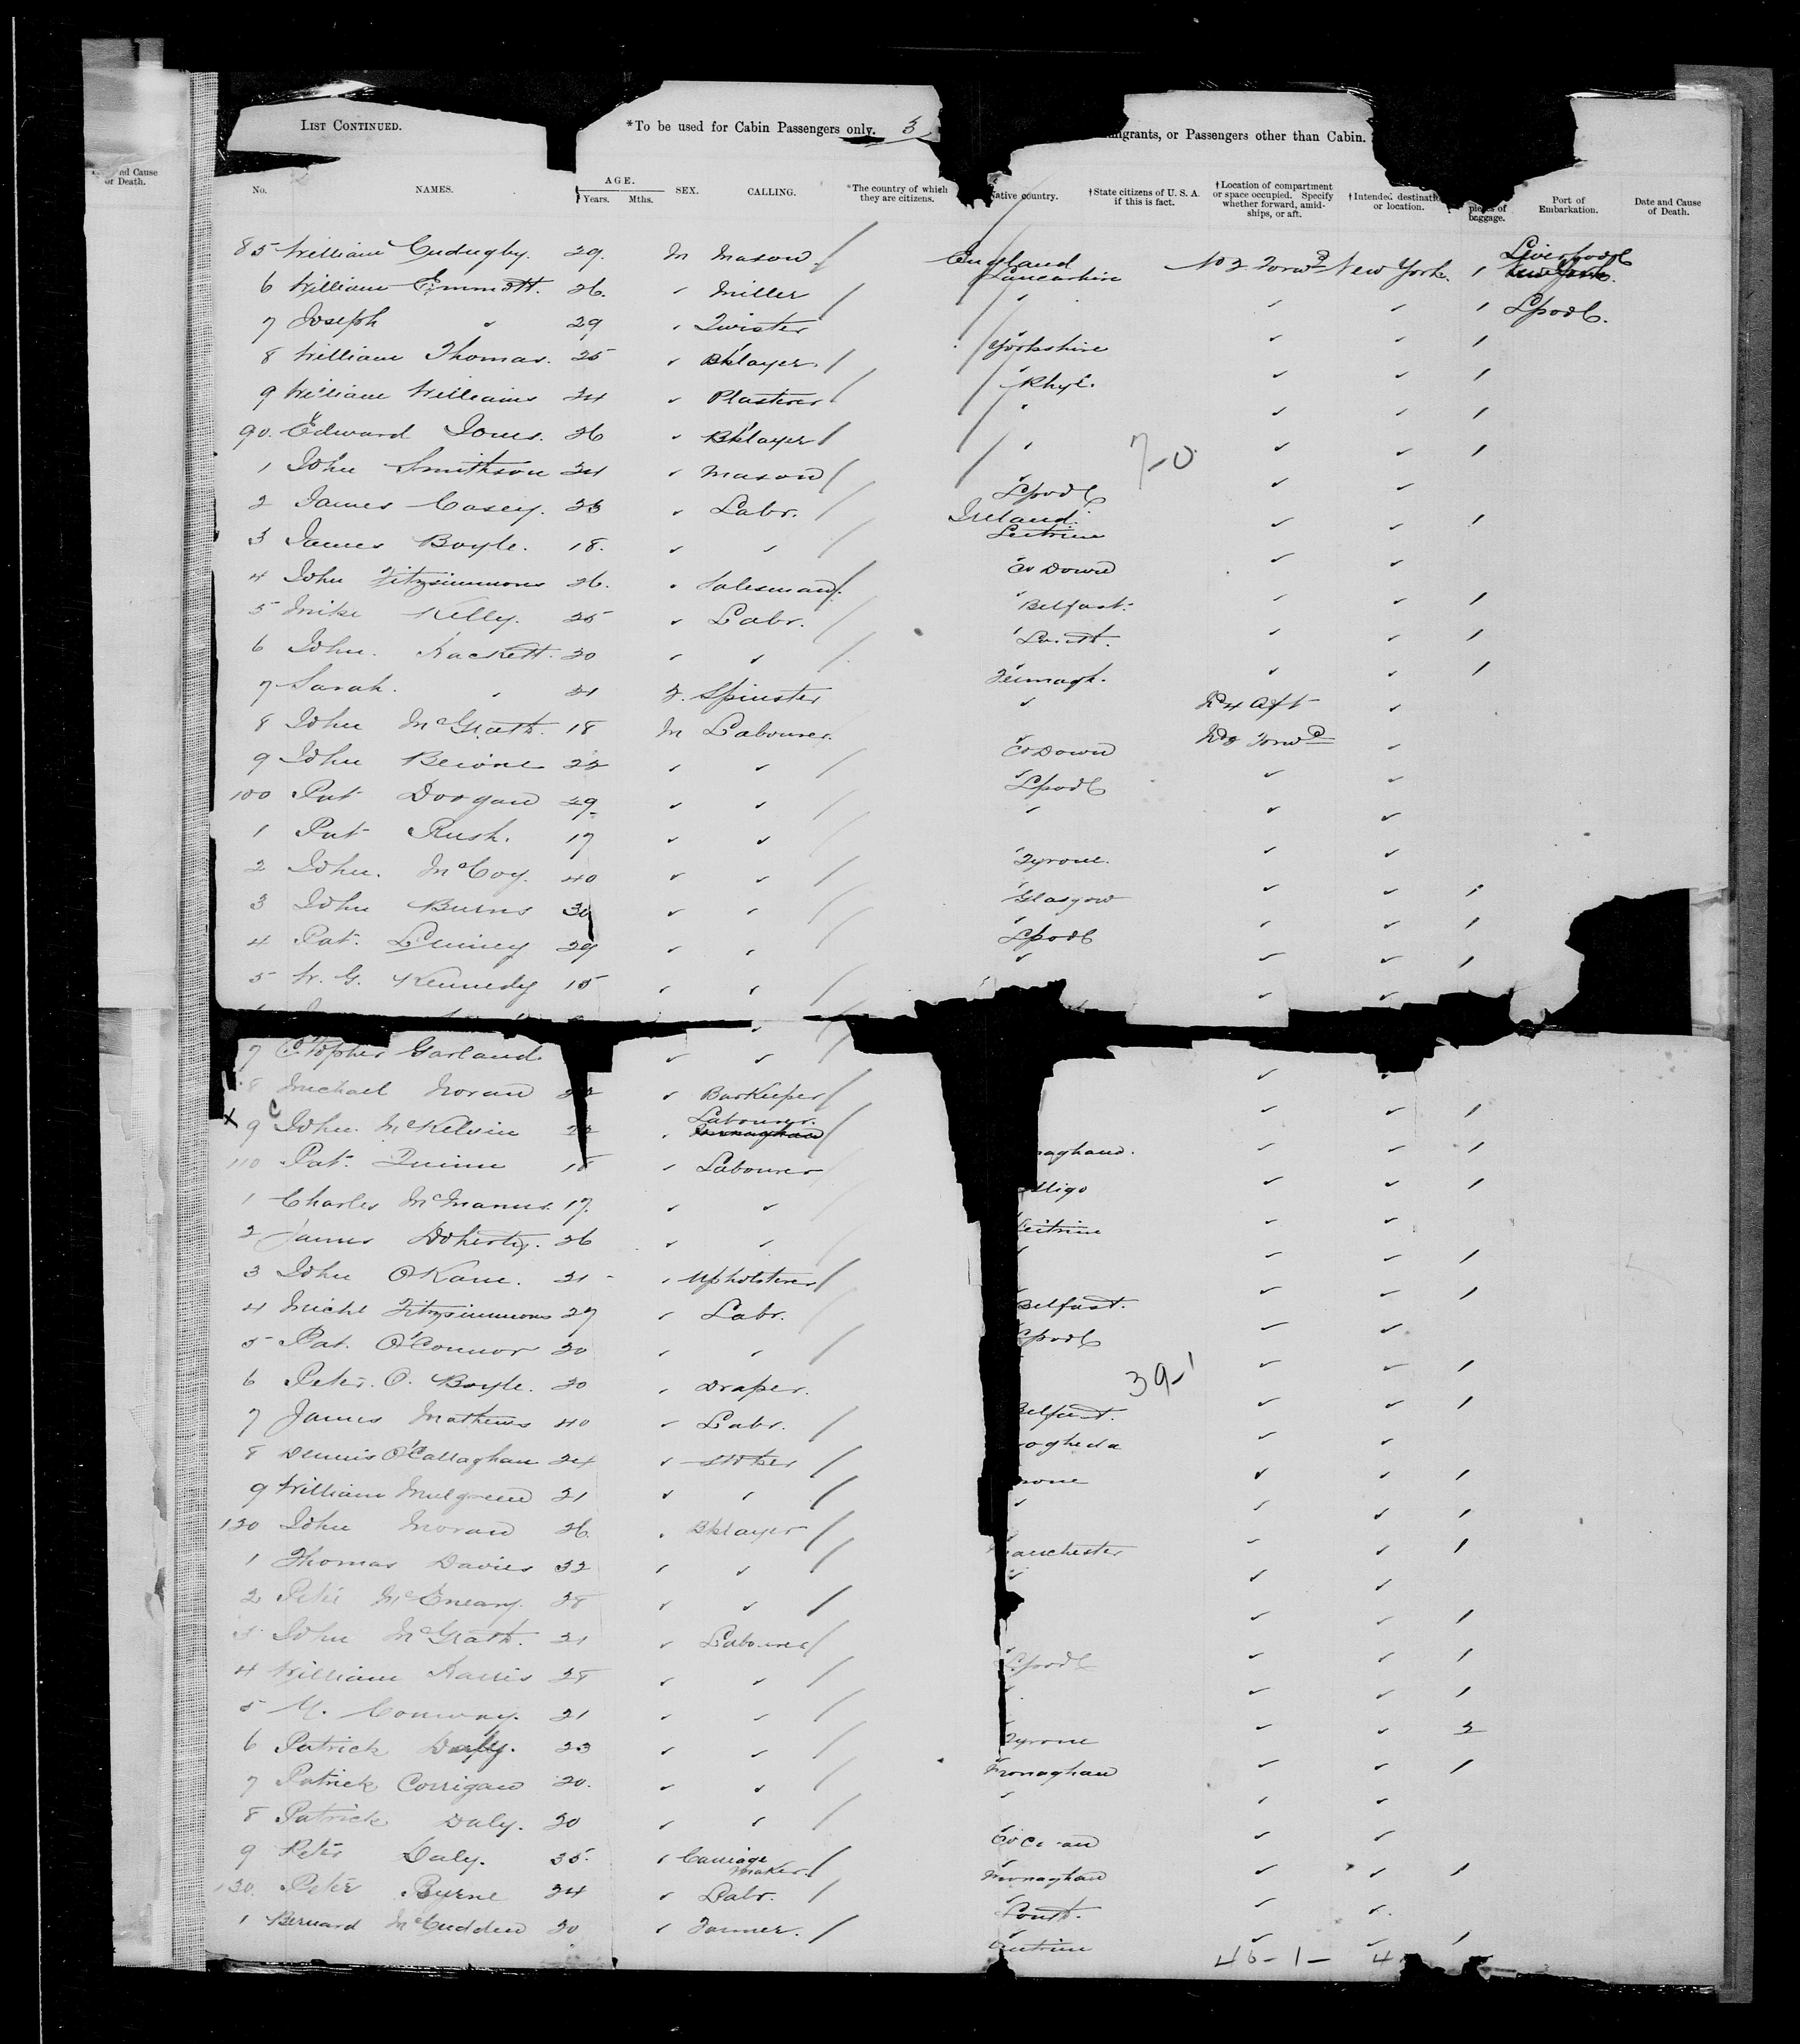 LIST CONTINUED. *To be used for Cabin Passengers only. 3 migrants, or Passengers other than Cabin.
nd Cause of Death.
No. NAMES. AGE. Years. Mths. SEX. CALLING. *The country of which they are citizens. Native country. †State citizens of U. S. A. if this is fact. †Location of compartment or space occupied. Specify whether forward, amidships, or aft. †Intended destination or location. pieces of baggage. Port of Embarkation. Date and Cause of Death.
85 William 29. M Mason England Lancashire No 2 Forwd New York 1 Liverpool
6 William Emmott. 26. " Miller " " " 1 Lpool.
7 Joseph " 29 " Twister Yorkshire " " 1
8 William Thomas. 25 " Bklayer Rhyl. " " 1
9 William Williams 24 " Plasterer " " " 1
90. Edward Jones. 26 " Bklayer " " " 1
1 John Smithson 24 " Mason Lpool " " 70
2 James Casey. 23 " Labr. Ireland. Leitrim " " 1
3 James Boyle. 18. " " Co Down " "
4 John Fitzsimmons 26. " Salesman Belfast. " " 1
5 Mike Kelly. 25 " Labr. Louth. " " 1
6 John. Hackett. 20 " " Fermagh. " " 1
7 Sarah. " 21 F. Spinster " No 4 Aft "
8 John McGrath. 18 M Labourer Co Down No 2 Forwd "
9 John Beirne 22 " " Lpool " "
100 Pat Doogan 29 " " " " "
1 Pat Rush. 17 " " Tyrone. " "
2 John. McCoy. 40 " " Glasgow " " 1
3 John Burns 30 " " Lpool " " 1
4 Pat. 29 " " " " " 1
5 W. G. Kennedy 15 " " " "
7 C'topher Garland. " " " "
8 Michael Moran " Barkeeper " " 1
X 9 C John. McKelvin 22 " Labourer. naghan. " " 1
110 Pat. Quinn 18 " Labourer Sligo " " 1
1 Charles McManus. 17. " " Leitrim " "
2 James Doherty. 26 " " " " " 1
3 John O'Kane. 21 " Upholsterer Belfast. " " 1
4 Michl Fitzsimmons 27 " Labr. Lpool " "
5 Pat. O'Connor 20 " " " " 1
6 Peter. O. Boyle. 20 " Draper. Belfast. " " 1 39-1
7 James Mathews 40 " Labr. ogheda " "
8 Dennis O'Callaghan 24 " Stoker rone " " 1
9 William Mulgrew 21 " " " " " 1
120 John Moran 26. " Bklayer anchester " " 1
1 Thomas Davies 32 " " " " "
2 Peter McEneany. 28 " " " " 1
3 John McGrath. 21 " Labourer Lpool " " 1
4 William Harris 28 " " " " " 1
5 M. Conway. 21 " " Tyrone " " 2
6 Patrick Duffy. 23 " " Monaghan " " 1
7 Patrick Corrigan 20. " " " " "
8 Patrick Daly. 20 " " Co Ca an " "
9 Peter Daly. 35. " Carriage Maker. Monaghan " " 1
130. Peter Byrne 24 " Labr. Louth. " "
1 Bernard McCudden 20 " Farmer. Antrim " " 1
46-1- 4